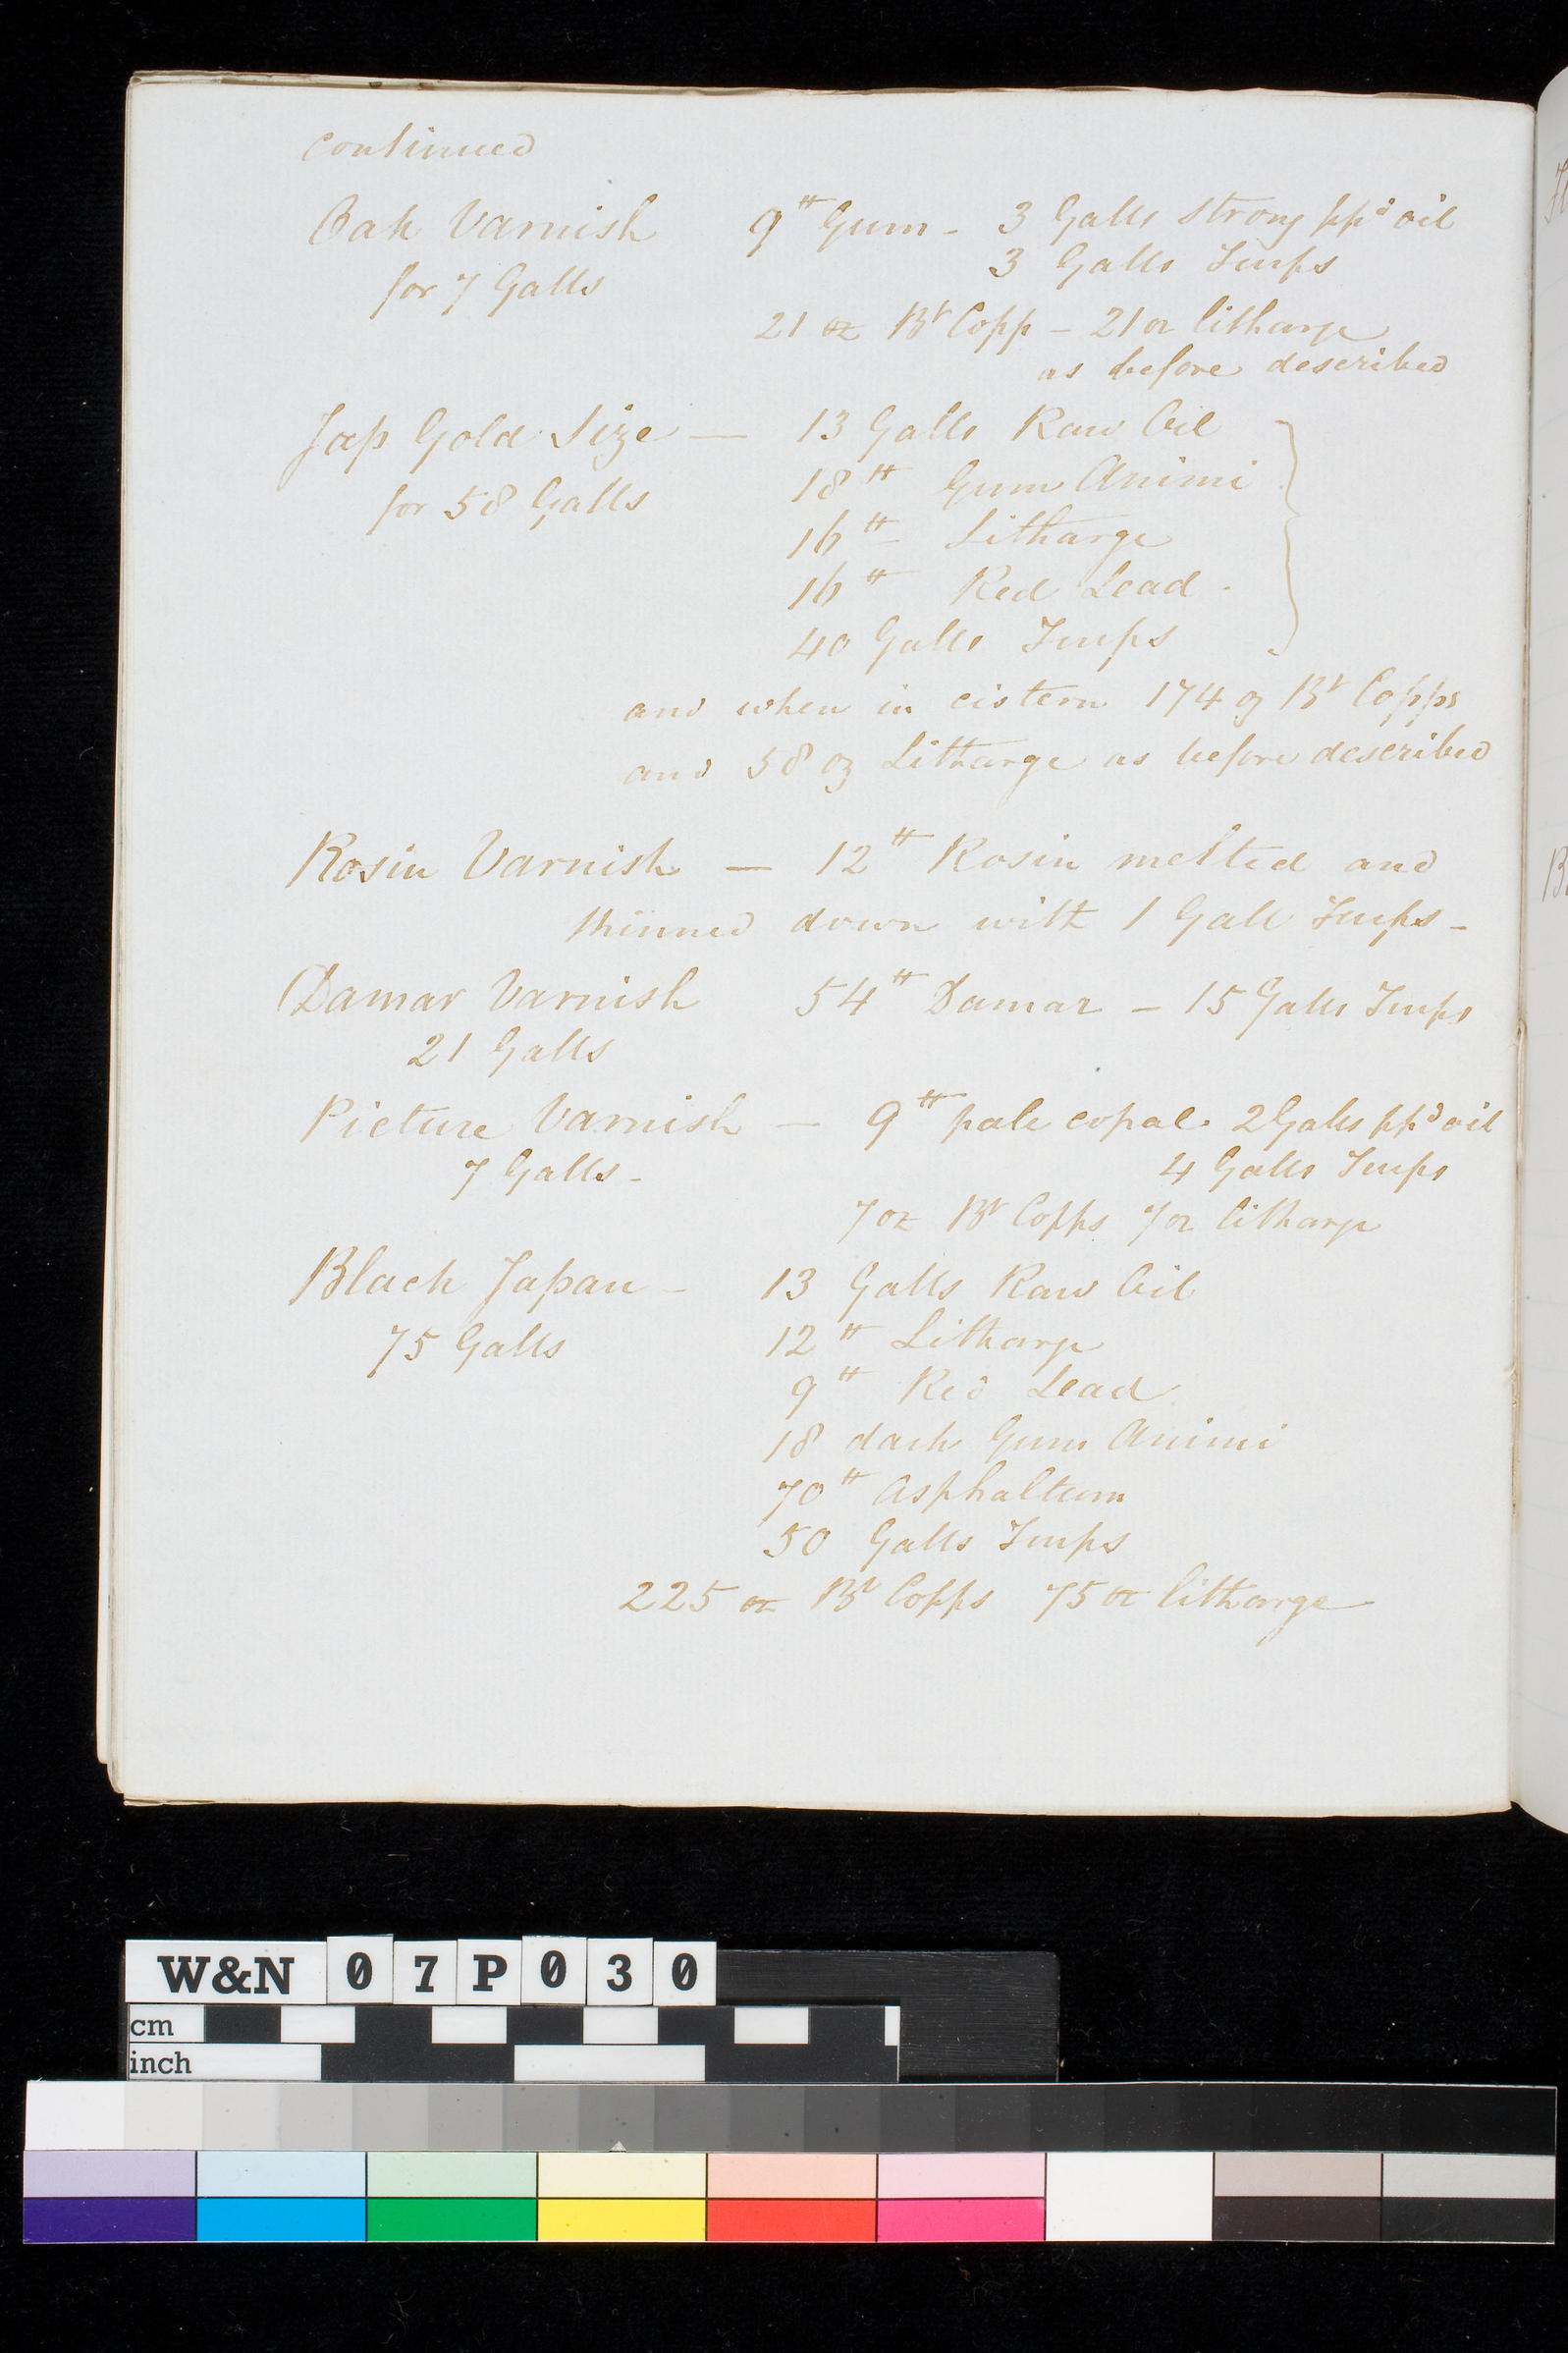 continued
Oak Varnish 9 ℔ Gum - 3 Galls strong ppd oil
for 7 Galls 3 Galls Turps
21 oz Bt Copp - 21 oz litharge
as before described
Jap Gold Size — 13 Galls Raw Oil
for 58 Galls 18 ℔ Gum Animi
16 ℔ Litharge
16 ℔ Red Lead -
40 Galls Turps
and when in cistern 174 oz Bt Copps
and 58 oz Litharge as before described
Rosin Varnish — 12 ℔ Rosin melted and
thinned down with 1 Gall Turps -
Damar Varnish 54 ℔ Damar - 15 Galls Turps
21 Galls
Picture Varnish — 9 ℔ pale copal. 2 Galls ppd oil
7 Galls - 4 Galls Turps
7 oz Bt Copps 7 oz litharge
Black Japan - 13 Galls Raw Oil
75 Galls 12 ℔ Litharge
9 ℔ Red Lead
18 dark Gum Animi
70 ℔ Asphaltum
50 Galls Turps
225 oz Bt Copps 75 oz litharge
W&N 07P030
cm
inch